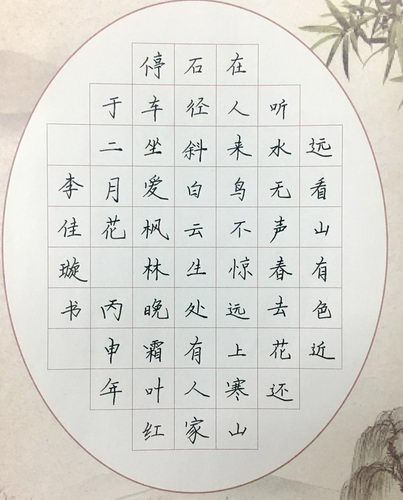 远看山有色近
听水无声春去花还
在人来鸟不惊远上寒山
石经斜白云生处有人家
停车坐爱枫林晚霜叶红
于二月花 丙申年
李佳璇书